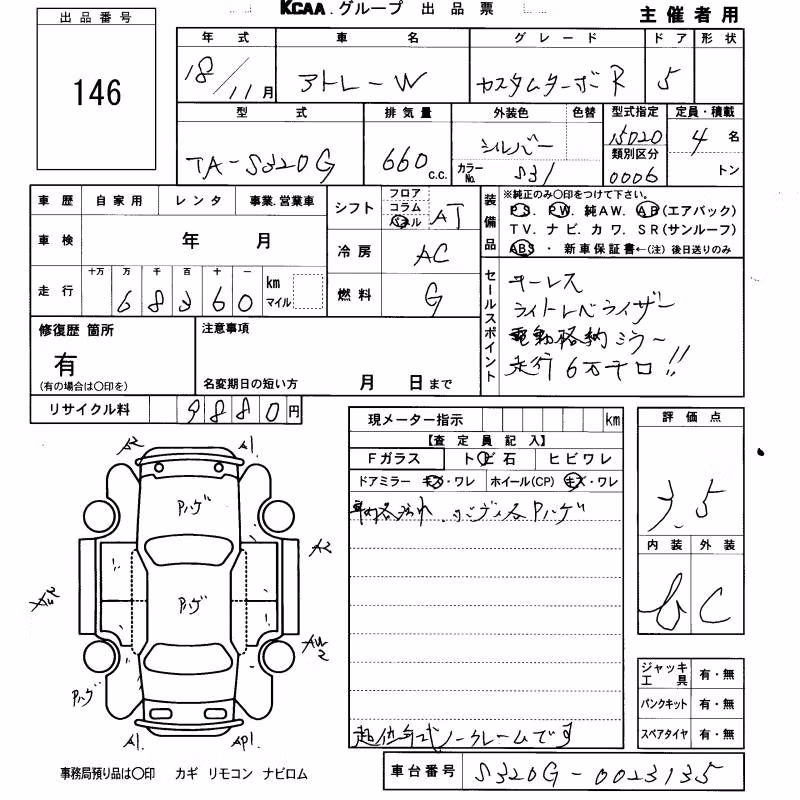 出品番号
146
KCAA.グループ 出品票
主催者用
年式 車名 グレード ドア 形状
18/11月 アトレーW カスタムターボR 5
型式 排気量 外装色 色替 型式指定 定員・積載
TA-S320G 660c.c. シルバー 15020 4名
カラーNo. S31 類別区分 0006 トン
車歴 自家用 レンタ 事業.営業車
車検 年 月
走行 十万 万 千 百 十 一 km マイル
68360
シフト フロア コラム パネル AT
冷房 AC
燃料 G
装備品 ※純正のみ〇印をつけて下さい。
PS. PW. 純AW. AB(エアバック)
TV. ナビ. カワ. SR(サンルーフ)
ABS ・ 新車保証書←(注) 後日送りのみ
セールスポイント
キーレス
ライトレベライザー
電動格納ミラー
走行6万キロ!!
修復歴 箇所
有
(有の場合は〇印を)
注意事項
名変期日の短い方 月 日まで
リサイクル料 9880円
現メーター指示 km
【査定員記入】
Fガラス トビ石 ヒビワレ
ドアミラー キズ・ワレ ホイール(CP) キズ・ワレ
Pハゲ
ノークレームです
評価点
3.5
内装 外装
C
ジャッキ工具 有・無
パンクキット 有・無
スペアタイヤ 有・無
A2 A1
Pハゲ
A2
Pハゲ
AW2
Pハゲ
A1. AP1
事務局預り品は〇印 カギ リモコン ナビロム
車台番号 S320G-0023135